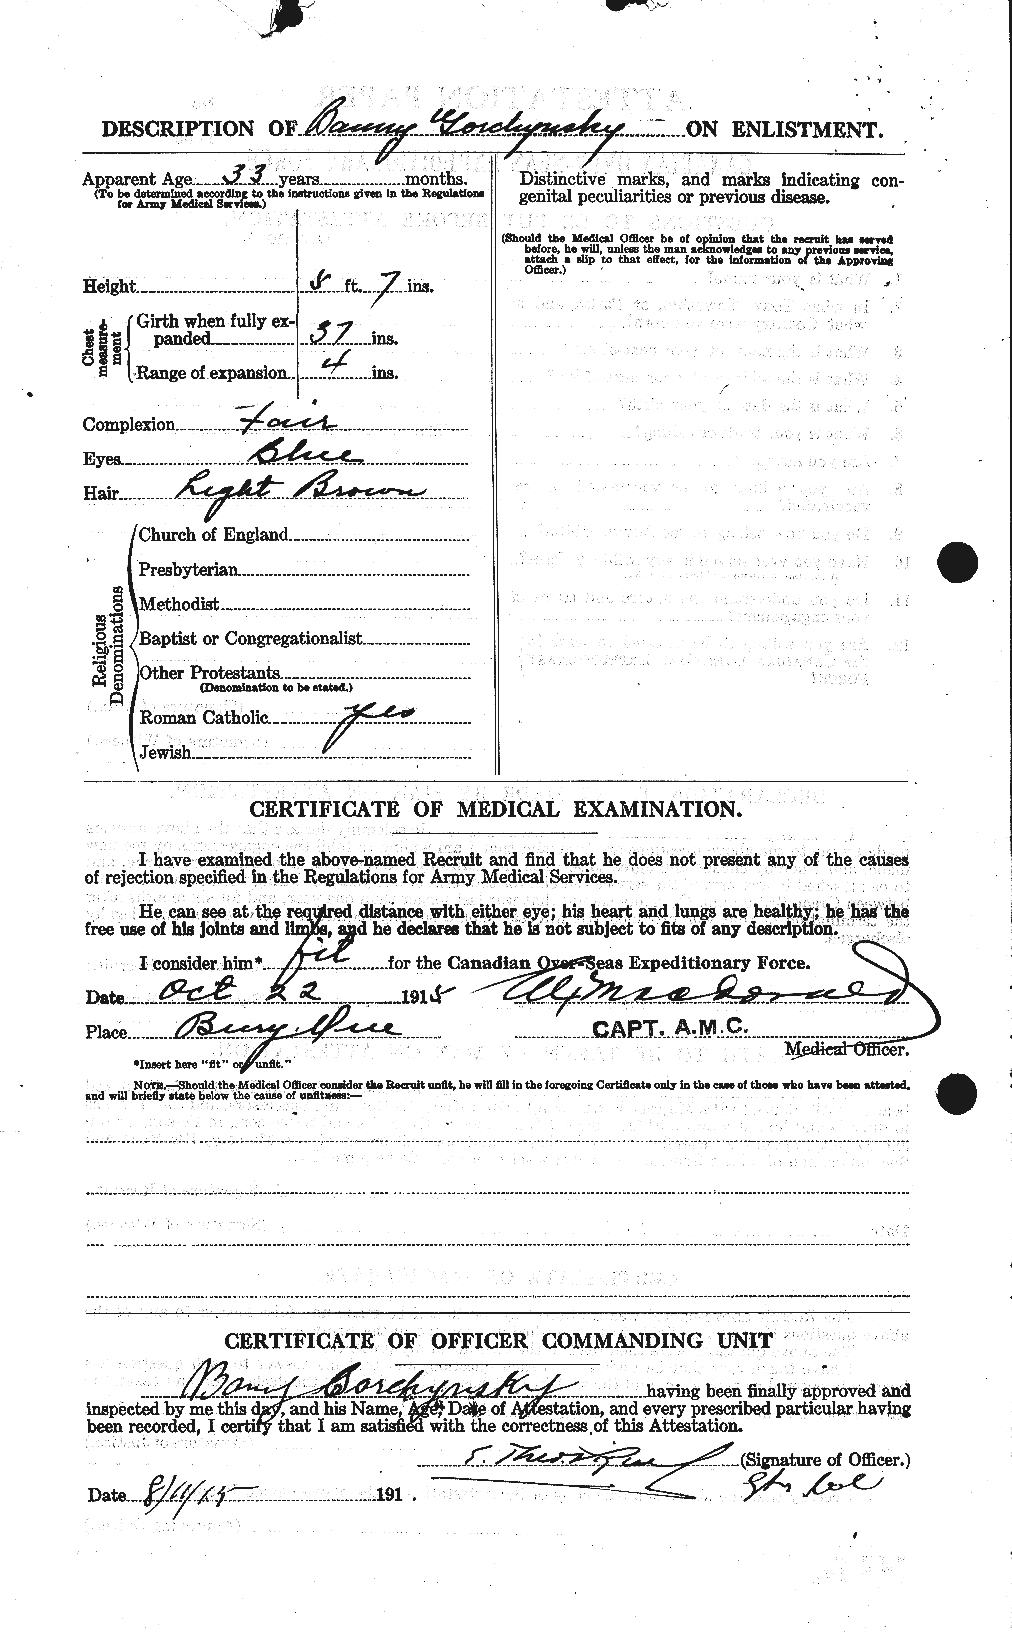 DESCRIPTION OF Banny Gorchynsky ON ENLISTMENT.
Apparent Age 33 years months.
(To be determined according to the instructions given in the Regulations
for Army Medical Services.)
Height 5 ft. 7 ins.
Chest measure-ment
Girth when fully ex-
panded 37 ins.
Range of expansion 4 ins.
Complexion Fair
Eyes Blue
Hair Light Brown
Religious Denominations
Church of England
Presbyterian
Methodist
Baptist or Congregationalist
Other Protestants
(Denomination to be stated.)
Roman Catholic yes
Jewish
Distinctive marks, and marks indicating con-
genital peculiarities or previous disease.
(Should the Medical Officer be of opinion that the recruit has served
before, he will, unless the man acknowledges to any previous service,
attach a slip to that effect, for the information of the Approving
Officer.)
CERTIFICATE OF MEDICAL EXAMINATION.
I have examined the above-named Recruit and find that he does not present any of the causes
of rejection specified in the Regulations for Army Medical Services.
He can see at the required distance with either eye; his heart and lungs are healthy; he has the
free use of his joints and limbs, and he declares that he is not subject to fits of any description.
I consider him* fit for the Canadian Over-Seas Expeditionary Force.
Date Oct 22 1915 Macdonald
Place Bury. Que
CAPT. A.M.C.
Medical Officer.
*Insert here "fit" or "unfit."
NOTE.—Should the Medical Officer consider the Recruit unfit, he will fill in the foregoing Certificate only in the case of those who have been attested,
and will briefly state below the cause of unfitness:—
CERTIFICATE OF OFFICER COMMANDING UNIT
Bany Gorchynsky having been finally approved and
inspected by me this day, and his Name, Age, Date of Attestation, and every prescribed particular having
been recorded, I certify that I am satisfied with the correctness of this Attestation.
(Signature of Officer.)
Date 191 .